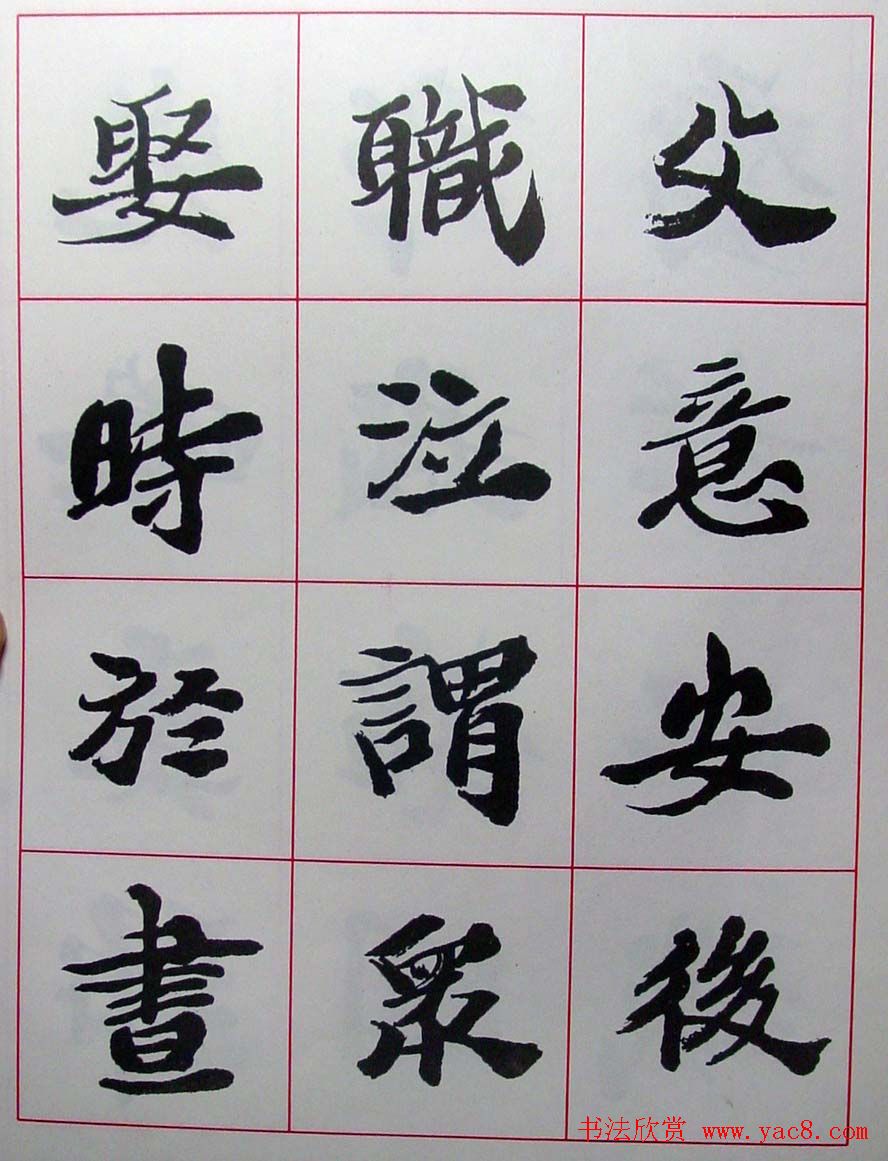 父意安後
職泣謂眾
娶時於晝
书法欣赏 www.yac8.com